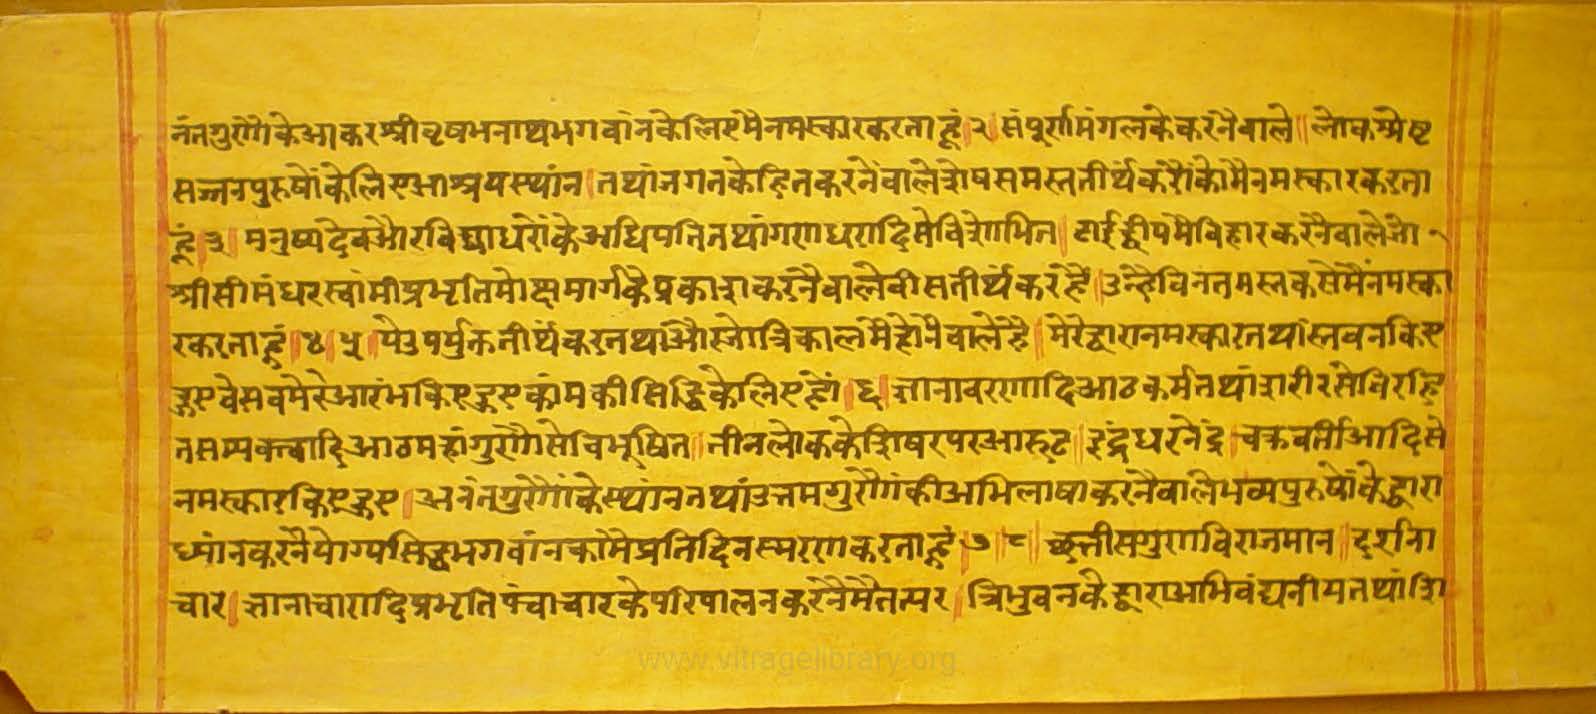 नंतगुणौंकेआकरश्रीवृषभनाथभगवांनकेलिएमैनमस्कारकरताहूं।२।संपूर्णमंगलकेकरंनैवाले॥लोकश्रेष्ट
सज्जनपुरुषोंकेलिएआश्रयस्थांन।तथांजगतकेहितकरनेंवालेशेषसमस्ततीर्थंकरौंकोमैनमस्कारकरता
हूं।३।मनुष्यदेवऔरविद्याधरोंकेअधिपतितथांगणधरादिसेवितशोभित।ढाईद्वीपमैविहारकरनैवालेजो
श्रीसीमंधरस्वांमीप्रभृतिमोक्षमार्गकेप्रकाशकरंनैवालेवीसतीर्थंकरहैं।उंन्हैविनंतमस्तकसेमैंनमस्का
रकरताहूं।४।५।येउपर्युक्ततीर्थंकरतथांऔरजोत्रिकालमैहोनैवालेहै॥मेरेद्वारानमस्कारतथांस्तवनकिए
हुएवेसवमेरेआरंभकिएहुएकांमकीसिद्धिकेलिएहों।६।ज्ञानावरणादिआठकर्मतथांशरीरसेविरहि
तसम्यक्त्वादिआठमहांगुणौंसेविभूषित॥तीनलोककेशिषरपरआरूढ॥इंद्रधरनेंद्र।चक्रवर्तीआदिसे
नमस्कारकिएहुए।अनंतगुणौंकेस्थांनतथांउत्तमगुणौंकीअभिलाषाकरनैवालेभव्यपुरुषोंकेद्वारा
ध्यांनकरनैयोग्यसिद्धभगवांनकोमैप्रतिदिनस्मरणकरताहूं।७।८॥छत्तीसगुणविराजमान॥दर्शना
चार।ज्ञानाचारादिप्रभृतिपंचाचारकेपरिपालनकरनैमैतत्पर।त्रिभुवनकेद्वाराअभिवंद्यनीयतथांशि
www.vitragelibrary.org